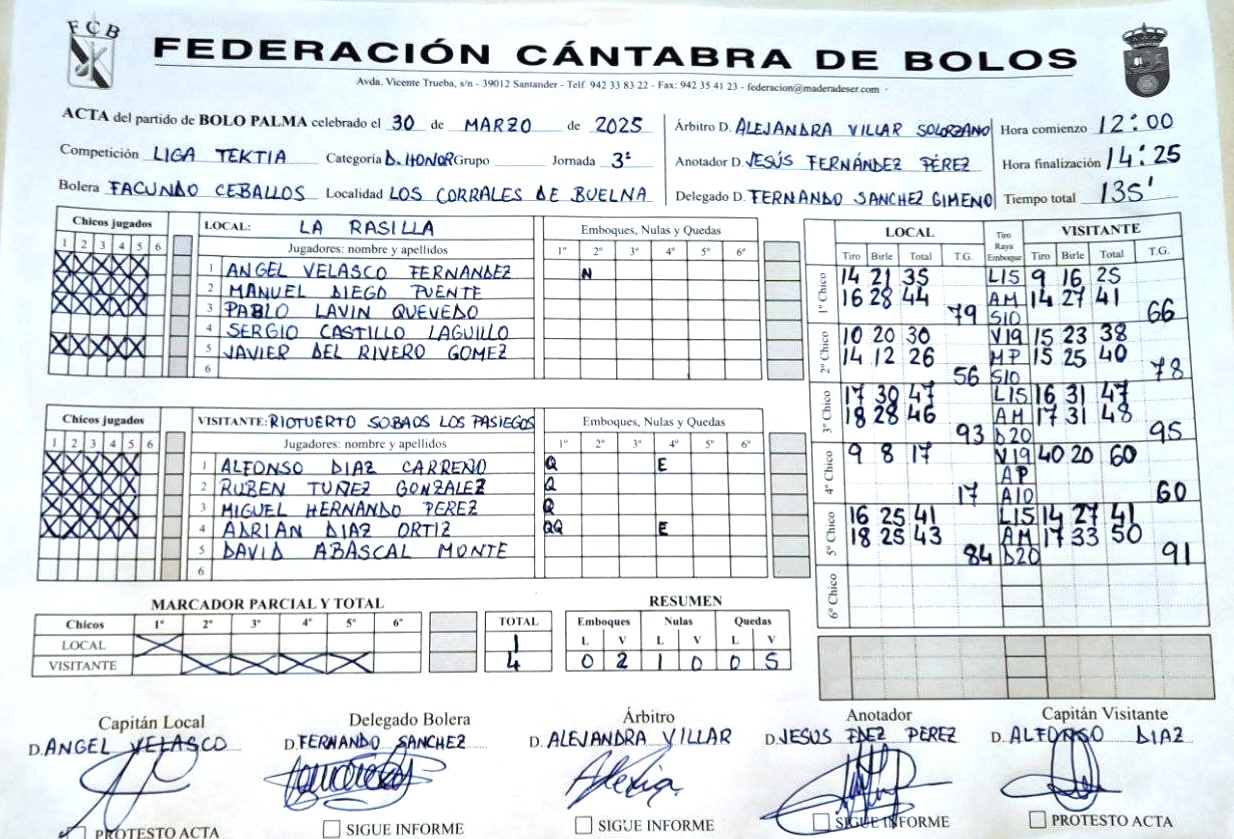 FCB
FEDERACIÓN CÁNTABRA DE BOLOS
Avda. Vicente Trueba, s/n - 39012 Santander - Telf. 942 33 83 22 - Fax: 942 35 41 23 - federacion@maderadeser.com
ACTA del partido de BOLO PALMA celebrado el 30 de MARZO de 2025
Competición LIGA TEKTIA Categoría D. HONOR Grupo Jornada 3ª
Bolera FACUNDO CEBALLOS Localidad LOS CORRALES DE BUELNA
Árbitro D. ALEJANDRA VILLAR SOLORZANO
Anotador D. JESÚS FERNÁNDEZ PÉREZ
Delegado D. FERNANDO SANCHEZ GIMENO
Hora comienzo 12:00
Hora finalización 14:25
Tiempo total 135'
Chicos jugados
1 2 3 4 5 6
LOCAL: LA RASILLA
Jugadores: nombre y apellidos
Emboques, Nulas y Quedas
1º 2º 3º 4º 5º 6º
1 ANGEL VELASCO FERNANDEZ N
2 MANUEL DIEGO PUENTE
3 PABLO LAVIN QUEVEDO
4 SERGIO CASTILLO LAGUILLO
5 JAVIER DEL RIVERO GOMEZ
6
Chicos jugados
1 2 3 4 5 6
VISITANTE: RIOTUERTO SOBAOS LOS PASIEGOS
Jugadores: nombre y apellidos
Emboques, Nulas y Quedas
1º 2º 3º 4º 5º 6º
1 ALFONSO DIAZ CARRENO Q E
2 RUBEN TUÑEZ GONZALEZ Q
3 MIGUEL HERNANDO PEREZ Q
4 ADRIAN DIAZ ORTIZ QQ E
5 DAVID ABASCAL MONTE
6
LOCAL Tiro Raya Emboque VISITANTE
Tiro Birle Total T.G. Tiro Birle Total T.G.
1º Chico
14 21 35 L15 9 16 25
16 28 44 AM 14 27 41
79 S10 66
2º Chico
10 20 30 V19 15 23 38
14 12 26 MP 15 25 40
56 S10 78
3º Chico
17 30 47 L15 16 31 47
18 28 46 AM 17 31 48
93 D20 95
4º Chico
9 8 17 V19 40 20 60
AP
17 A10 60
5º Chico
16 25 41 L15 14 27 41
18 25 43 AM 17 33 50
84 D20 91
6º Chico
MARCADOR PARCIAL Y TOTAL
Chicos 1º 2º 3º 4º 5º 6º TOTAL
LOCAL 1
VISITANTE 4
RESUMEN
Emboques Nulas Quedas
L V L V L V
0 2 1 0 0 5
Capitán Local
D. ANGEL VELASCO
PROTESTO ACTA
Delegado Bolera
D. FERNANDO SANCHEZ
SIGUE INFORME
Árbitro
D. ALEJANDRA VILLAR
SIGUE INFORME
Anotador
D. JESUS FDEZ PEREZ
SIGUE INFORME
Capitán Visitante
D. ALFONSO DIAZ
PROTESTO ACTA